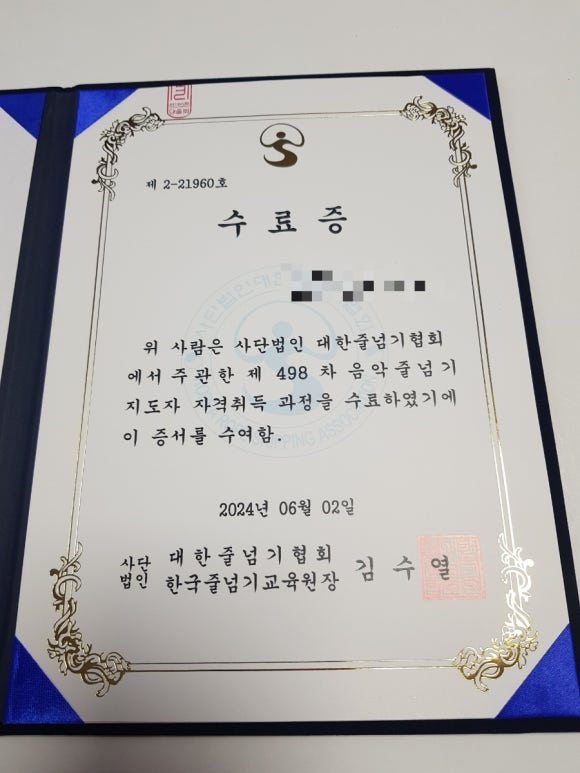 제 2-21960호
수료증
위 사람은 사단법인 대한줄넘기협회
에서 주관한 제 498 차 음악줄넘기
지도자 자격취득 과정을 수료하였기에
이 증서를 수여함.
2024년 06월 02일
사단법인 대한줄넘기협회
한국줄넘기교육원장 김수열